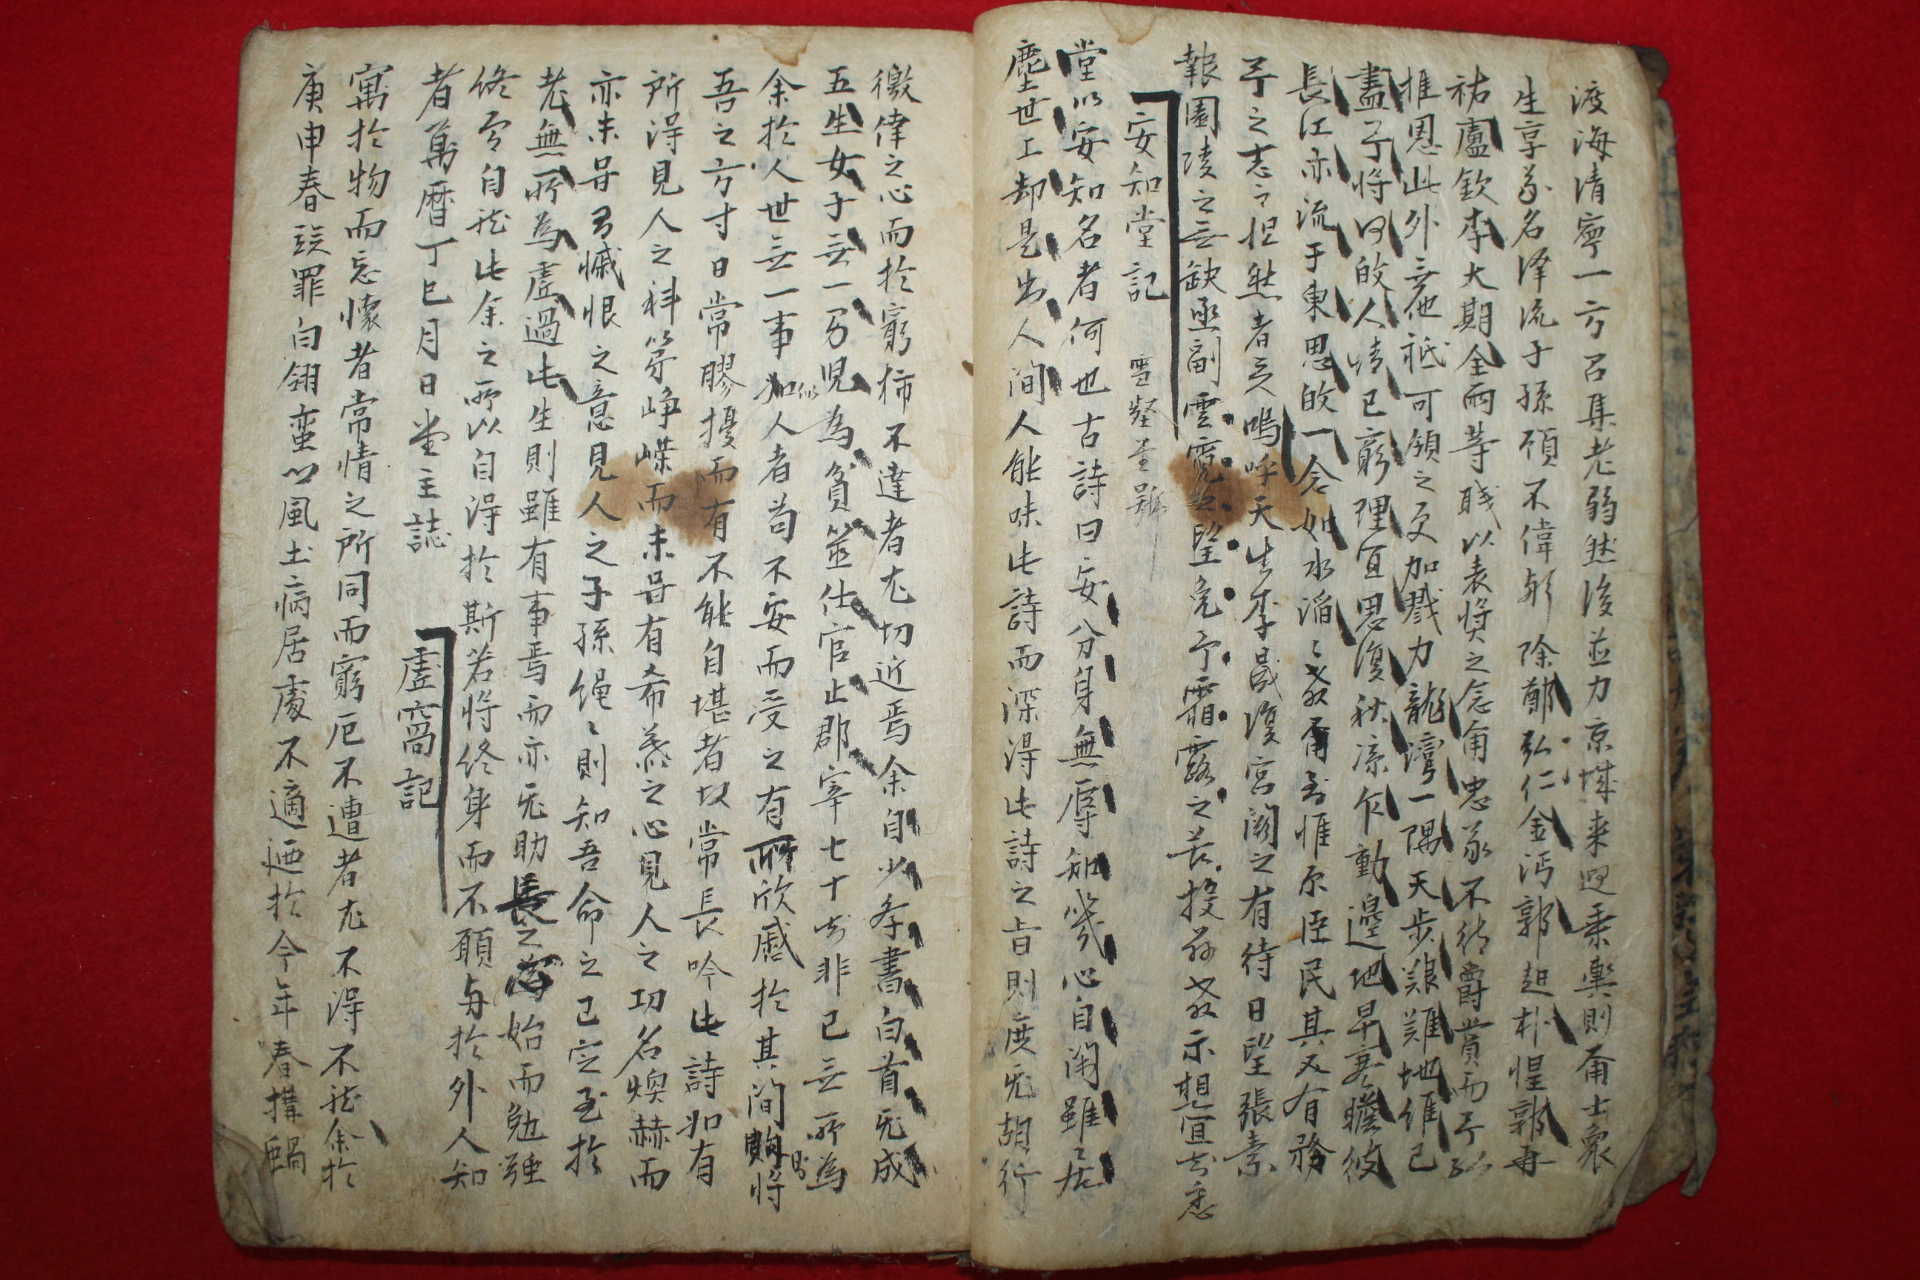 渡海清寧一方召集老弱然後並力京城來迎乘輿則爾士衆
生享爵名澤流子孫顧不偉歟除鄭弘仁金沔郭赹朴惺郭再
祐盧欽李大期全雨等職以表奬之念爾忠豕不待爵賞而予以
推恩此外無他祗可領之更加戮力龍灣一隅天步艱難地維已
盡予將何歸人情已窮理宜思復秋凉乍動邊地早寒瞻彼
長江亦流于東思歸一念如水滔〻敎到惟原臣民其又有務
予之志之怛然者矣嗚呼天生李晟復宮闕之有待日望張素
報園陵之無缺亟副雲霓之望免予霜露之苦投玆敎示想宜知悉
安知堂記
堂以安知名者何也古詩曰安分身無辱知幾心自閑雖居
塵世上却是出人間人能味此詩而深得此詩之旨則庶无胡行
徼倖之心而於窮柿不達者尤切近焉余自少冬書白首无成
五生女子無一男兒為貧筮仕官止郡宰七十知非已無所為
余於人世無一事如似人者苟不安而受之有所欣慼於其間則將
吾之方寸日常膠擾而有不能自堪者故常長吟此詩如有
所得見人之科第崢嶸而未甞有希慕之心見人之功名煥赫而
亦未甞有慽恨之意見人之子孫繩〻則知吾命之已定至於
老無所為虛過此生則雖有事焉而亦无助長之始而勉强
終焉自能此余之所以自得於斯若將終身而不願與於外人知
者萬曆丁巳月日堂主誌
虛窩記
寓於物而忘懷者常情之所同而窮厄不遭者尤不得不能余於
庚申春竢罪白翎蛮以風土病居處不適廼於今年春搆蝸